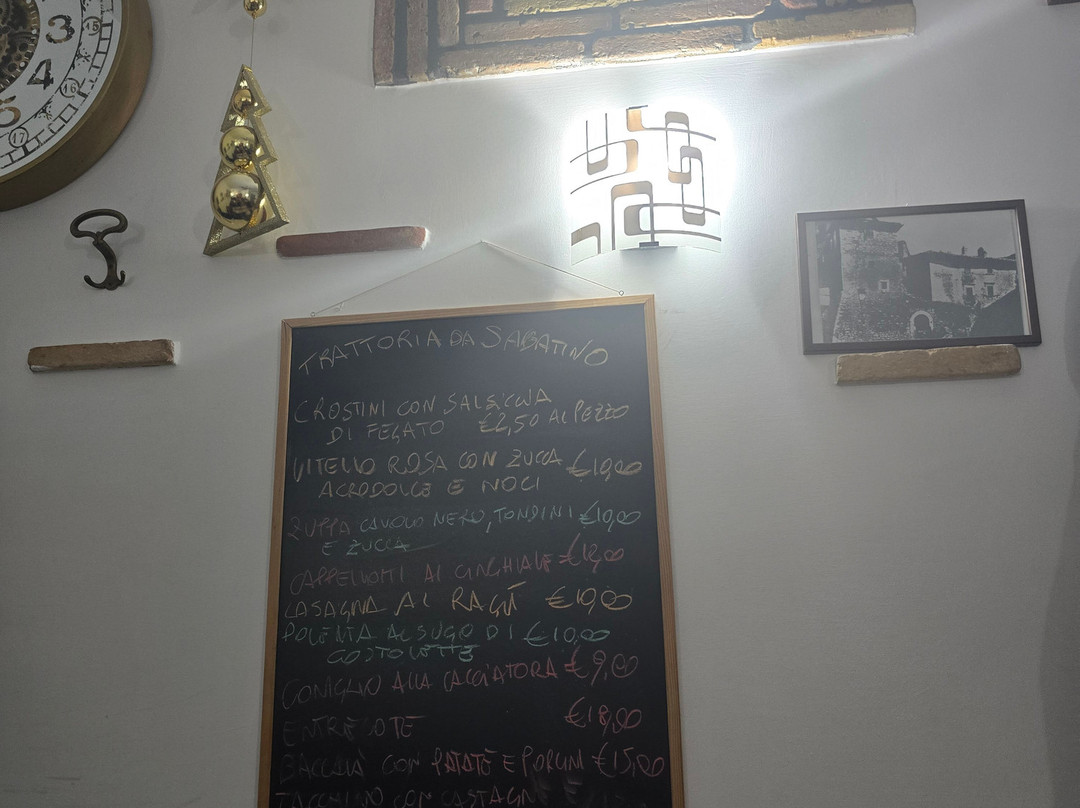 3
4
15
16
17
TRATTORIA DA SABATINO
CROSTINI CON SALSiCCiA
DI FEGATO €2,50 AL PEZZO
VITELLO ROSA CON ZUCCA €10,00
AGRODOLCE E NOCI
ZUPPA CAVOLO NERO, TONDINI €10,00
E ZUCCA
CAPPELLOTTI AL CINGHIALE
LASAGNA AL RAGÚ €10,00
POLENTA AL SUGO DI €10,00
COSTOLETTE
CONIGLIO ALLA CACCiATORA €9,00
ENTRECOTE €18,00
BACCALÀ CON PATATE E PORCINI €15,00
TACCHINO CON CASTAGNE